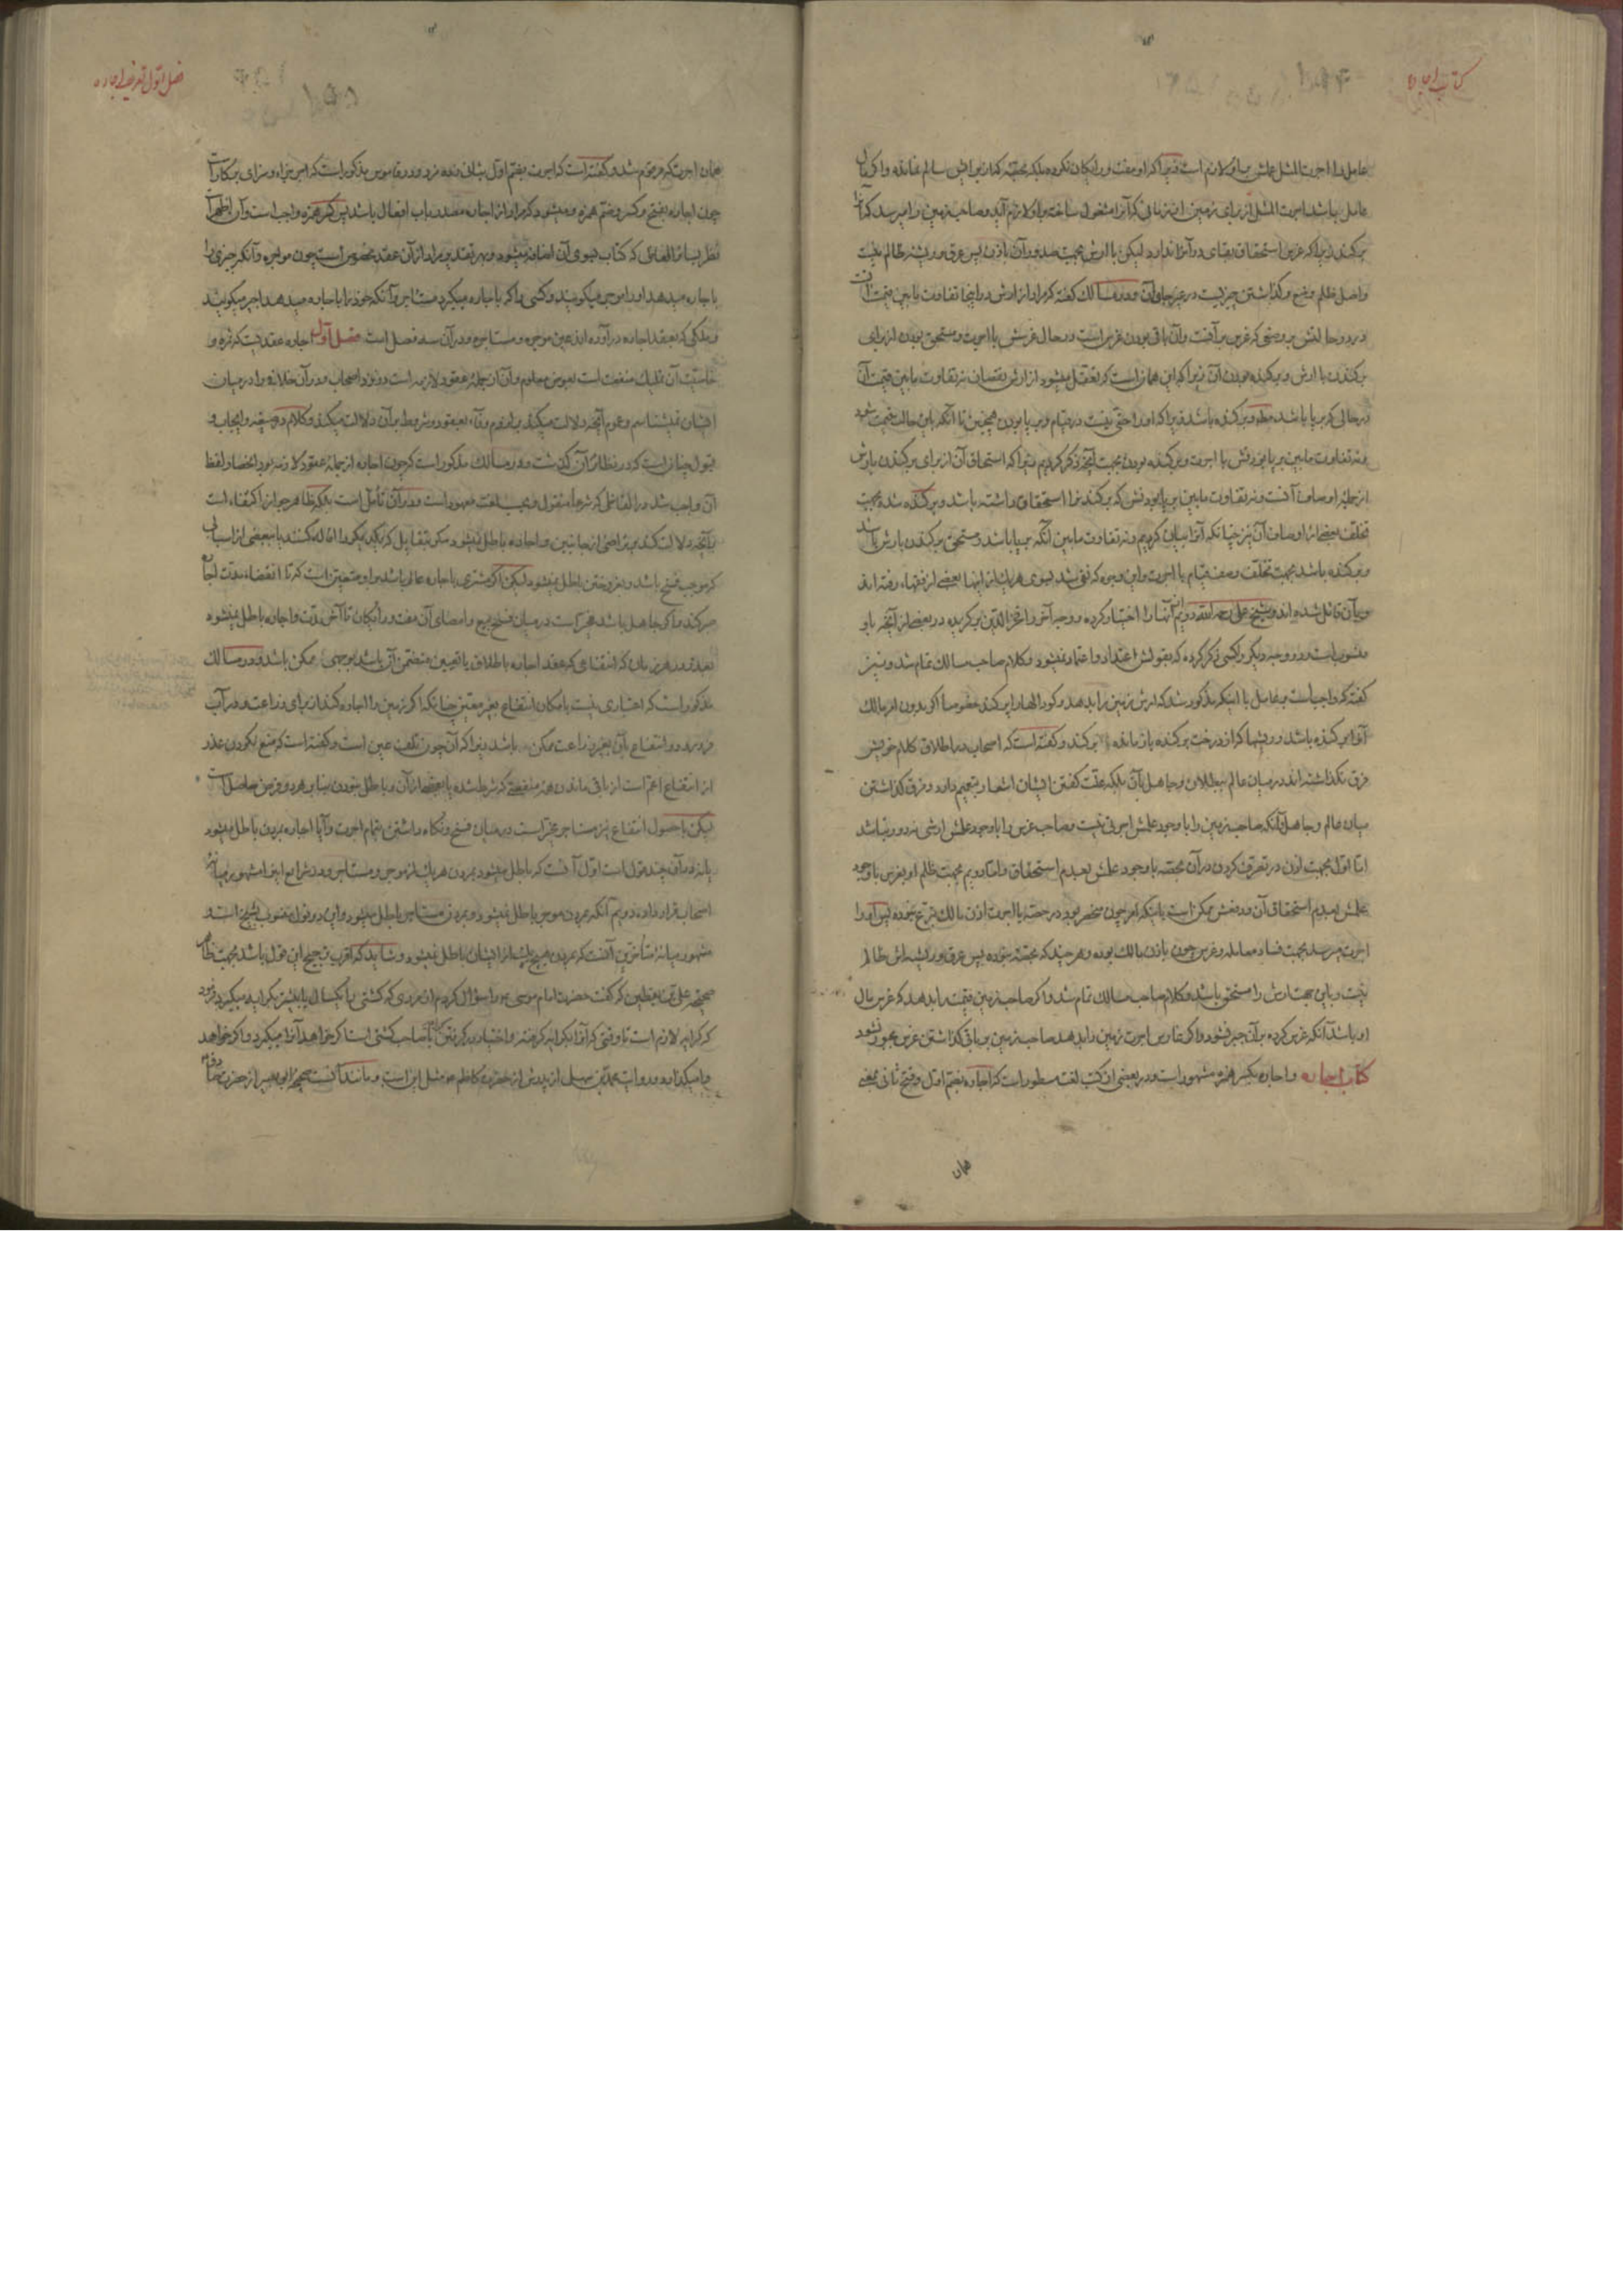 کتاب اجاره
عامل را اجرت المثل عملش بر او لازم است زیرا که او مفت و رایکان نکرده بلکه بحصه کذا برایش سالم نمانده و اکر از مال
عامل باشد اجرت المثل از برای زمین از زمانی که آنرا مشغول ساخته بر او لازم آید و صاحب زمین را میرسد که آنرا
برکند زیرا که غرس استحقاق بقای در آنرا ندارد لیکن با ارش بجهت صدور آن باذن پس عرق و ریشه ظالم نیست
واصل ظلم وضع و کذاشتن چیزیست در غیر جای آن و در مسالک کفته که مراد از ارش در اینجا تفاوت ما بین قیمت آن
در دو حالتش بر وضعی که غرس بر آنست و آن باقی بودن غرس است در حال غرسش با اجرت و مستحق بودن از برای
برکندن با ارش و برکنده بودن آن زیرا که این همان است که تعقل میشود از ارش نقصان نه تفاوت ما بین قیمت آن
در حالی که بر پا باشد مطلقا و برکنده باشد زیرا که او را حقی نیست در قیام و بر پا بودن همچنین تا آنکه باین حالت قیمت شود
و نه تفاوت ما بین بر پا بودنش با اجرت و برکنده بودن بجهت آنچه ذکر کردیم زیرا که استحقاق آن از برای برکندن بارش
از جمله اوصاف آنست و نه تفاوت ما بین بر پا بودنش که برکندنرا استحقاق داشته باشد و برکنده شده بجهت
تخلف بعضی از اوصاف آن نیز چنانکه آنرا بیان کردیم و نه تفاوت ما بین آنکه بر پا باشد و مستحق برکندن بارش باشد
و برکنده باشد بجهت تخلف وصف قیام با اجرت و این وجوه که نفی شد بسوی هر یک از اینها بعضی از فقهاء رفته اند
و بآن قائل شده اند و شیخ علی رحمه الله دویم آنها را اختیار کرده و وجه آخر را فخر الدین برکزیده و بعضی از آنچه باو
منسوب است و دو وجه دیکر را کسی ذکر کرده که بقولش اعتداد و اعتماد نمیشود و کلام صاحب مسالک تمام شد و نیز
کفته که واجب است بر عامل با اینکه مذکور شد که ارش زمین را بدهد و کودالها را پر کند خصوصا اکر بدون امر مالک
آنرا برکنده باشد و ریشها که از درخت برکنده باز مانده برکند و کفته است که اصحاب در اطلاق کلام خویش
فرق نکذاشته اند در میان عالم ببطلان و جاهل بآن بلکه علت کفتن ایشان اشعار بتعمیم دارد و فرق کذاشتن
میان عالم و جاهل بآنکه صاحب زمین را با وجود علمش اجرتی نیست و صاحب غرس را با وجود علمش ارشی نه دور نباشد
اما اول بجهت اذن در تصرف کردن در آن بحصه با وجود علمش بعدم استحقاق و اما دویم بجهت ظلم او بغرس با وجود
علمش بعدم استحقاق آن و دفعش ممکن است باینکه امر چون منحصر بود در حصه یا اجرت اذن مالک تبرع نبوده پس او را
اجرت میرسد بجهت فساد معامله و غرس چون باذن مالک بوده و هر چند که بحصه بوده پس عرق و ریشه اش ظالم
نیست و باین جهت ارش را مستحق باشد و کلام صاحب مسالک تمام شد و اکر صاحب زمین قیمت را بدهد که غرس مال
او باشد آنکه غرس کرده بر آن جبر نشود و اکر غارس اجرت زمین را بدهد صاحب زمین بر باقی کذاشتن غرس مجبور نشود
کتاب اجاره و اجاره بکسر همزه مشهور است و در بعضی از کتب لغت مسطور است که اجاره بضم اول و فتح ثانی بمعنی
همان
فصل اول تعریف اجاره
همان اجرت که مرقوم شد و کفته است که اجرت بضم اول بنان وده مزد و در قاموس مذکور است که اجر جزاء و سزای بر کار است
چون اجاره بفتح و کسر و ضم همزه و میشود که مراد از اجاره مصدر باب افعال باشد پس کسر همزه واجب است و آن اظهر است
نظر بسایر الفاظی که کتاب بسوی آن اضافه میشود و بهر تقدیر مراد از آن عقد مخصوص است چون مواجره و آنکه چیزی را
باجاره میدهد او را موجر میکویند و کسی را که باجاره میکیرد مستاجر و آنکه خود را باجاره میدهد اجیر میکویند
و ملکی که بعقد اجاره در آورده اند عین موجره و مستاجره و در آن سه فصل است فصل اول اجاره عقدیست که ثمره و
خاصیت آن تملیک منفعت است بعوض معلوم و آن از جمله عقود لازمه است و نزد اصحاب و در آن خلافی را در میان
ایشان نمیشناسم و عموم آنچه دلالت میکند بر لزوم وفاء بعقود و شروط بر آن دلالت میکند و کلام در صیغه و ایجاب و
قبول چنان است که در نظائر آن کذشت و در مسالک مذکور است که چون اجاره از جمله عقود لازمه بود انحصار لفظ
آن واجب شد در الفاظی که شرعا منقول و بحسب لغت معهود است و در آن تأمل است بلکه ظاهر جواز اکتفاء است
بآنچه دلالت کند بر تراضی از جانبین و اجاره باطل نمیشود مکر بتقایل که یکدیکر را اقاله کنند یا ببعضی از اسبابی
که موجب فسخ باشد و بفروختن باطل نمیشود لیکن اکر مشتری باجاره عالم باشد بر او متعین است که تا انقضاء مدت اجاره
صبر کند و اکر جاهل باشد مخیر است در میان فسخ بیع و امضای آن مفت و رایکان تا آخر مدت و اجاره باطل نمیشود
بعذر در هر زمان که انتفاعی که عقد اجاره باطلاق یا تعیین متضمن آن باشد بوجهی ممکن باشد و در مسالک
مذکور است که اعتباری نیست بامکان انتفاع بغیر معین چنانکه اکر زمین را اجاره کند از برای زراعت و در آب
فرو رود و انتفاع بآن بغیر زراعت ممکن باشد زیرا که آن چون تلف عین است و کفته است که منع نکردن عذر
از انتفاع اعم است از باقی ماندن همه منفعتی که شرط شده یا بعضی از آن و باطل نبودن بنا بر هر دو فرض حاصل است
لیکن با حصول انتفاع نیز مستاجر مخیر است در میان فسخ و نکاه داشتن بتمام اجرت و آیا اجاره بمردن باطل میشود
یا نه در آن چند قول است اول آنست که باطل میشود بمردن هر یک از موجر و مستاجر و در شرایع اینرا مشهور میانه
اصحاب قرار داده دویم آنکه بمردن موجر باطل نمیشود و بمردن مستاجر باطل میشود و این دو قول منسوب بشیخ است و
مشهور میانه متأخرین آنست که بمردن هیچیک از ایشان باطل نمیشود و شاید که اقرب ترجیح این قول باشد بجهت ظاهر
صحیحه علی بن یقطین که کفت حضرت امام موسی ع را سؤال کردم از مردی که کشتی را یکسال یا بیشتر بکرایه میکیرد فرمود
که کرایه لازم است تا وقتی که آنرا بکرایه کرفته و اختیار در کرفتن کرایه با صاحب کشتی است اکر خواهد آنرا میکیرد و اکر خواهد
وا میکذارد و روایت محمد بن سهل از پدرش از حضرت کاظم ع مثل این است و مانند آنست صحیحه ابو بصیر از حضرت صادق ع